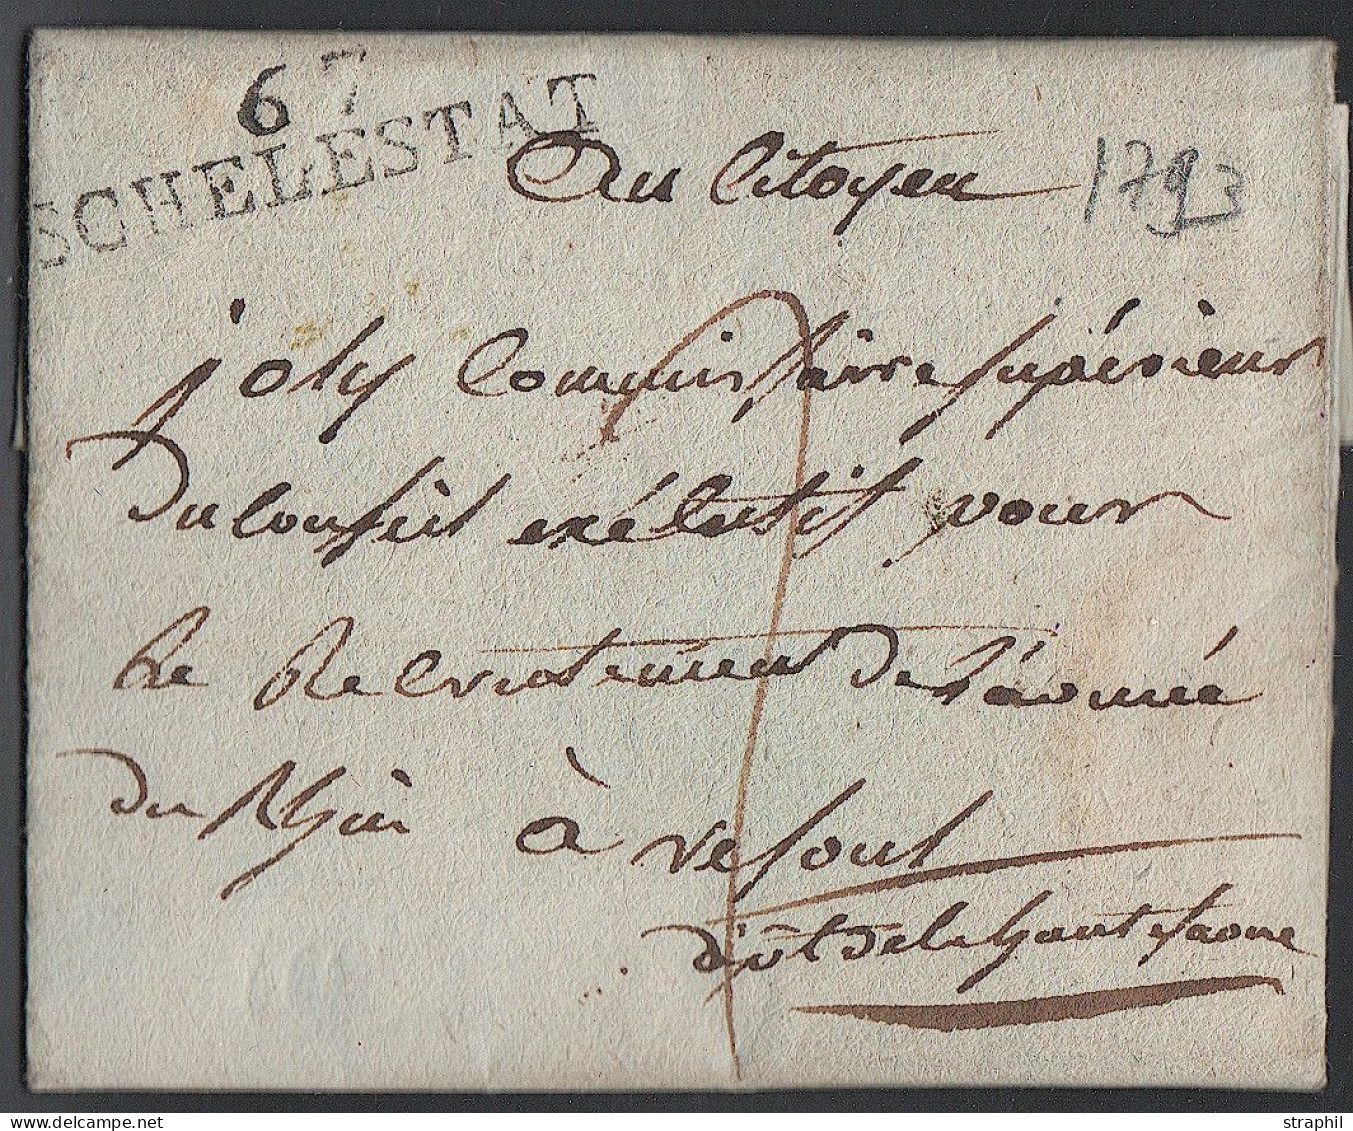 67
SCHELESTAT
Au Citoyen
1793
joly Commissaire supérieur
Du Conseil exécutif pour
le Recrutement de l'armée
du Rhin à vesoul
dép't de la haute saone
straphil